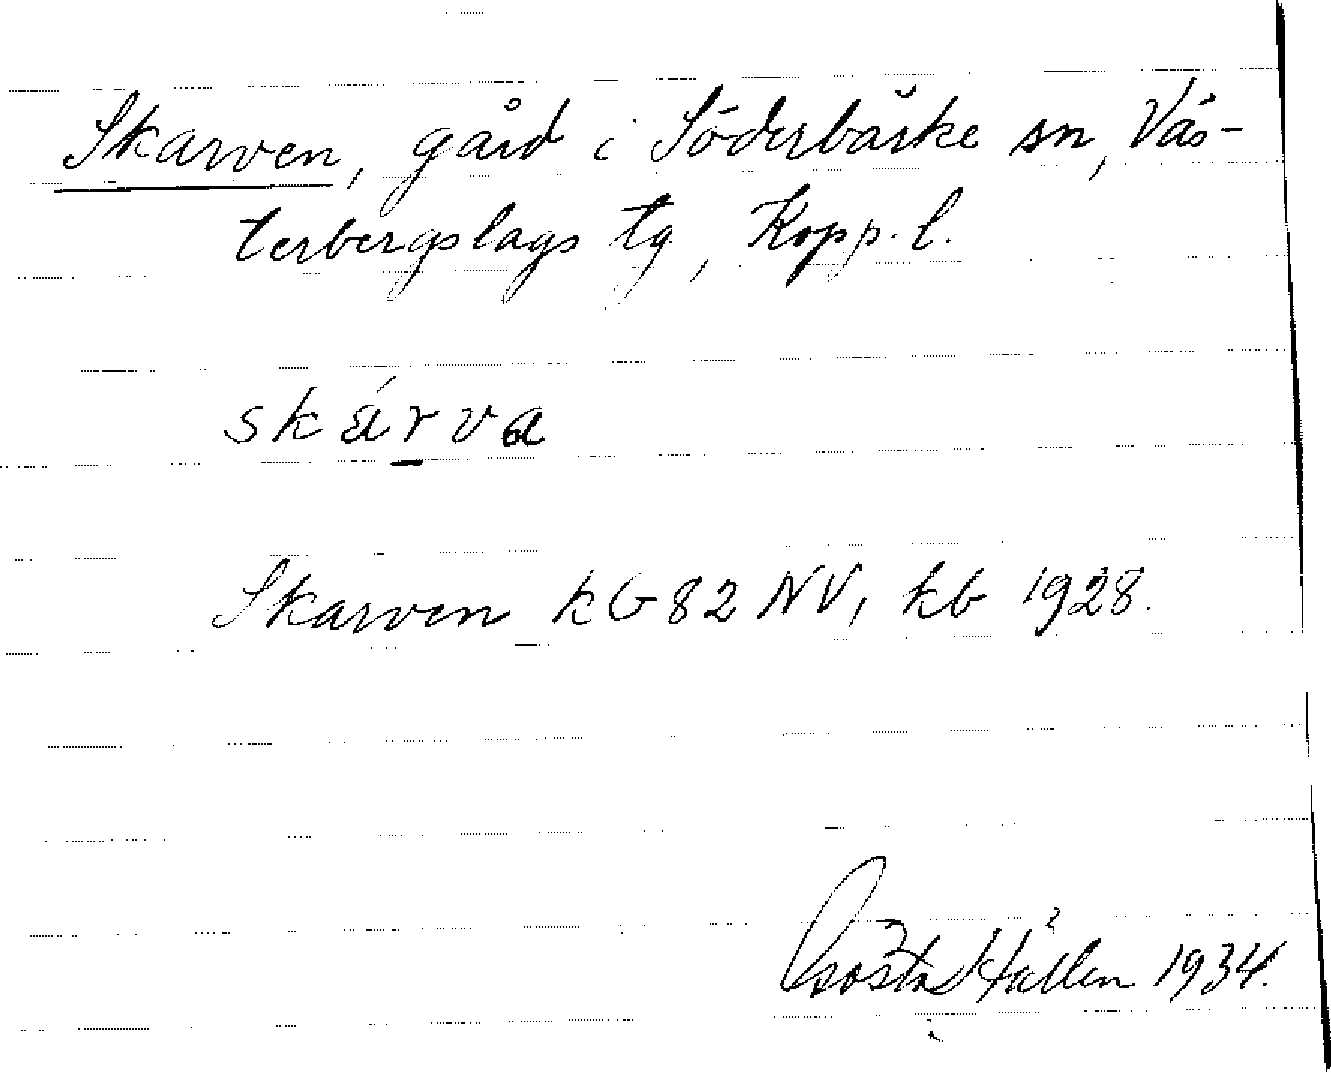 Skarven, gård i Söderbärke sn, Väs-
terbergslags tg, Kopp. l.
skárva
Skarven kG82NV, kb 1928.
Gösta Hållen 1934.